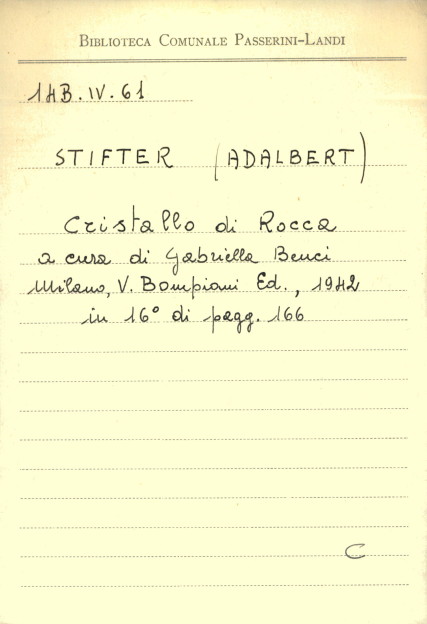 BIBLIOTECA COMUNALE PASSERINI-LANDI
14B.IV.61
STIFTER (ADALBERT)
Cristallo di Rocca
a cura di Gabriella Benci
Milano, V. Bompiani Ed., 1942
in 16° di pagg. 166
C